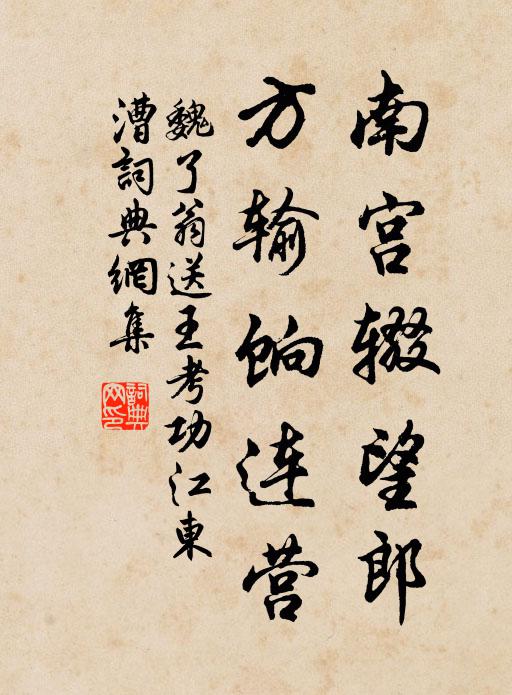 南宫辍望郎
方输饷连营
魏了翁送王考功江東
漕詞典網集
詞典
网印